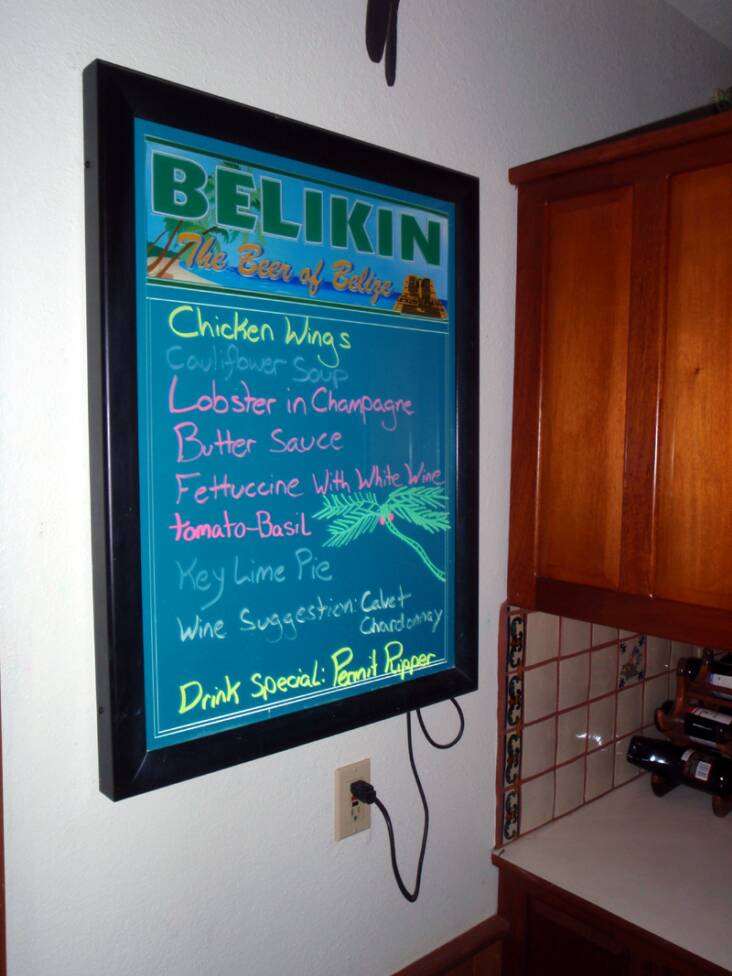 BELIKIN
The Beer of Belize
Chicken Wings
Cauliflower Soup
Lobster in Champagne
Butter Sauce
Fettuccine With White Wine
tomato-Basil
Key Lime Pie
Wine Suggestion: Calvet
Chardonnay
Drink Special: Permit Ripper